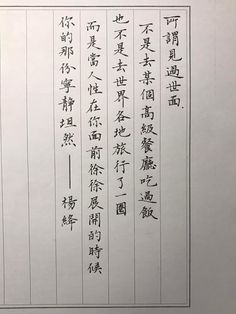 所謂見過世面.
不是去某個高級餐廳吃過飯
也不是去世界各地旅行了一圈
而是當人性在你面前徐徐展開的時候
你的那份寧靜坦然——楊絳